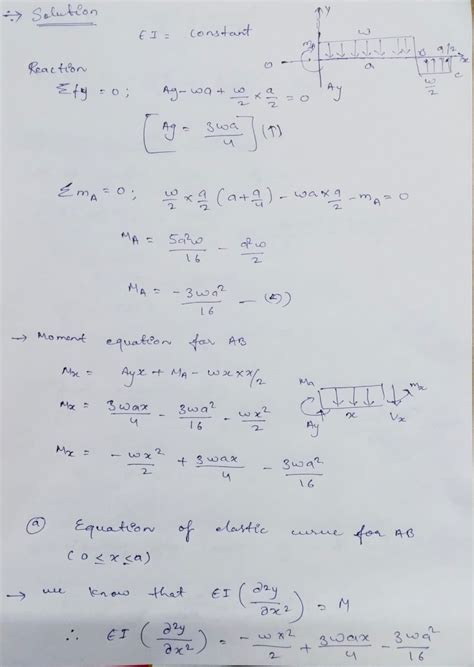 ÷> Solution
EI = constant
y
w
a/2
MA
B
x
0
a
Ay
w/2
C
Reaction
Σfy = 0; Ay - wa + w/2 × a/2 = 0
[Ay = 3wa/4] (↑)
ΣmA = 0; w/2 × a/2 (a + a/4) - wa × a/2 - mA = 0
MA = 5a²w/16 - a²w/2
MA = -3wa²/16 - (↺)
→ Moment equation for AB
Mx = Ayx + MA - wx × x/2
Mx = 3wax/4 - 3wa²/16 - wx²/2
Mx = -wx²/2 + 3wax/4 - 3wa²/16
Ma
mx
x
Ay
Vx
(a) Equation of elastic curve for AB
(0 ≤ x ≤ a)
→ we know that EI (∂²y/∂x²) = M
∴ EI (∂²y/∂x²) = -wx²/2 + 3wax/4 - 3wa²/16